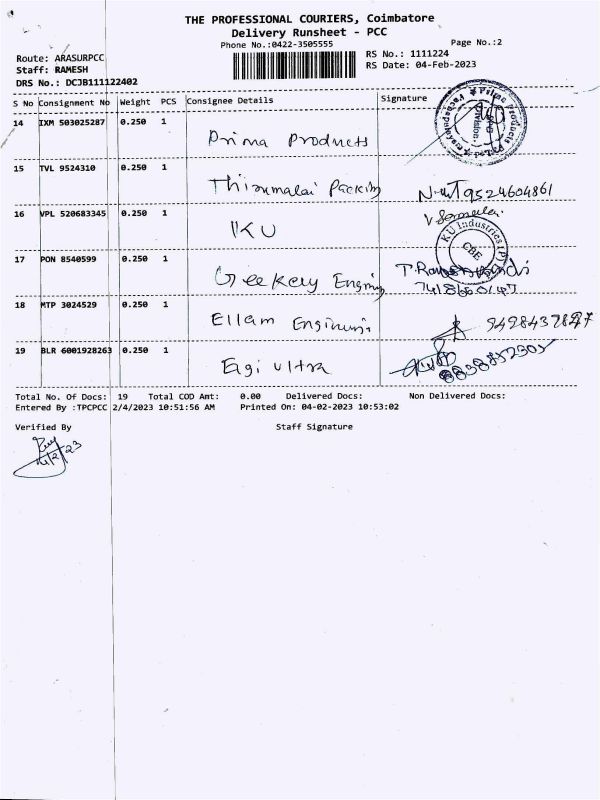 THE PROFESSIONAL COURIERS, Coimbatore
Delivery Runsheet - PCC
Phone No.:0422-3505555
Page No.:2
Route: ARASURPCC
RS No.: 1111224
Staff: RAMESH
RS Date: 04-Feb-2023
DRS No.: DCJB111122402
S No Consignment No Weight PCS Consignee Details Signature
14 IXM 503025287 0.250 1 Prima Products
15 TVL 9524310 0.250 1 Thirumalai Packing 9524604861
16 VPL 520683345 0.250 1 KU
KU Industries (P) CBE
17 PON 8540599 0.250 1 Geekay Engining
18 MTP 3024529 0.250 1 Ellam Enginuni 9498437847
19 BLR 6001928263 0.250 1 Eagi Ultra
Total No. Of Docs: 19 Total COD Amt: 0.00 Delivered Docs: Non Delivered Docs:
Entered By :TPCPCC 2/4/2023 10:51:56 AM Printed On: 04-02-2023 10:53:02
Verified By Staff Signature
4/2/23